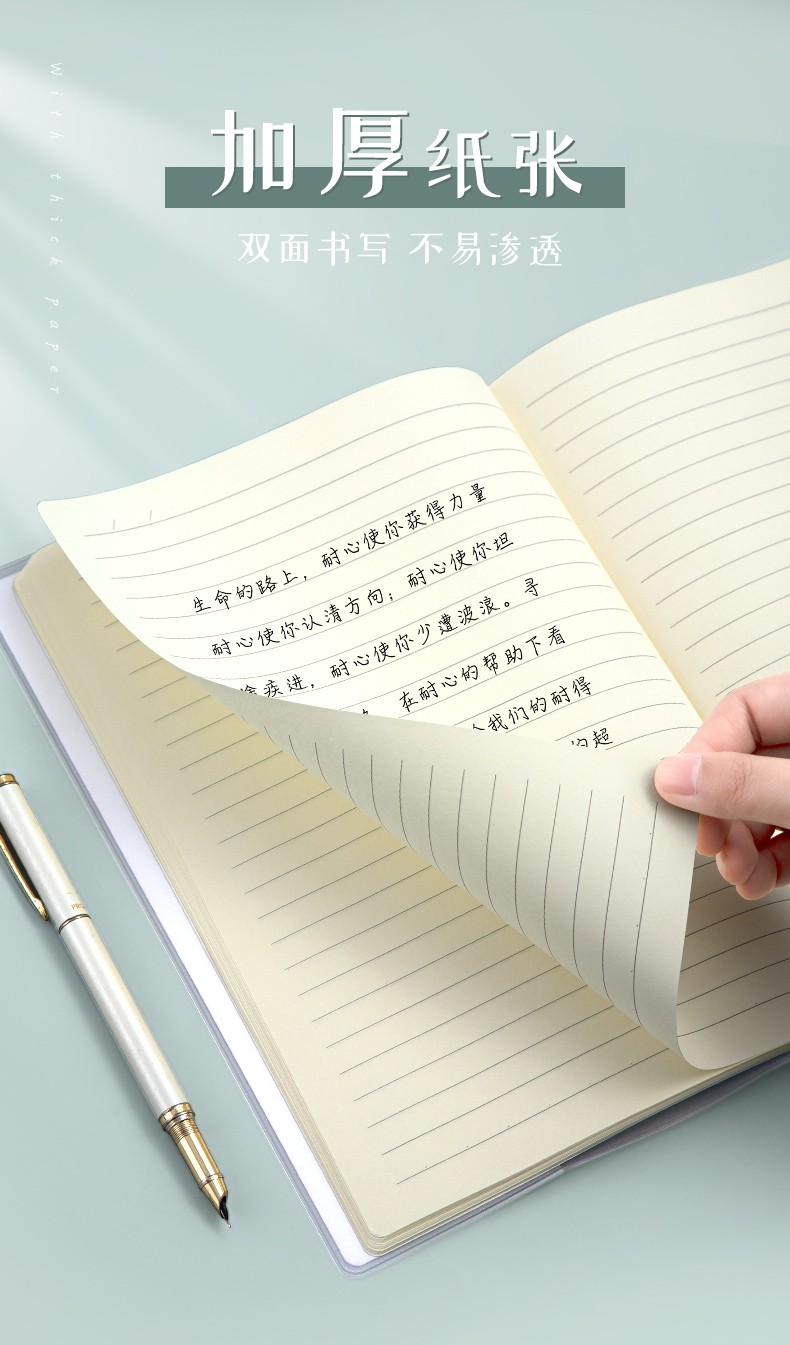 with thick paper
加厚纸张
双面书写 不易渗透
生命的路上，耐心使你获得力量
耐心使你认清方向；耐心使你坦
疾进，耐心使你少遭波浪。寻
在耐心的帮助下看
我们的耐得
的超